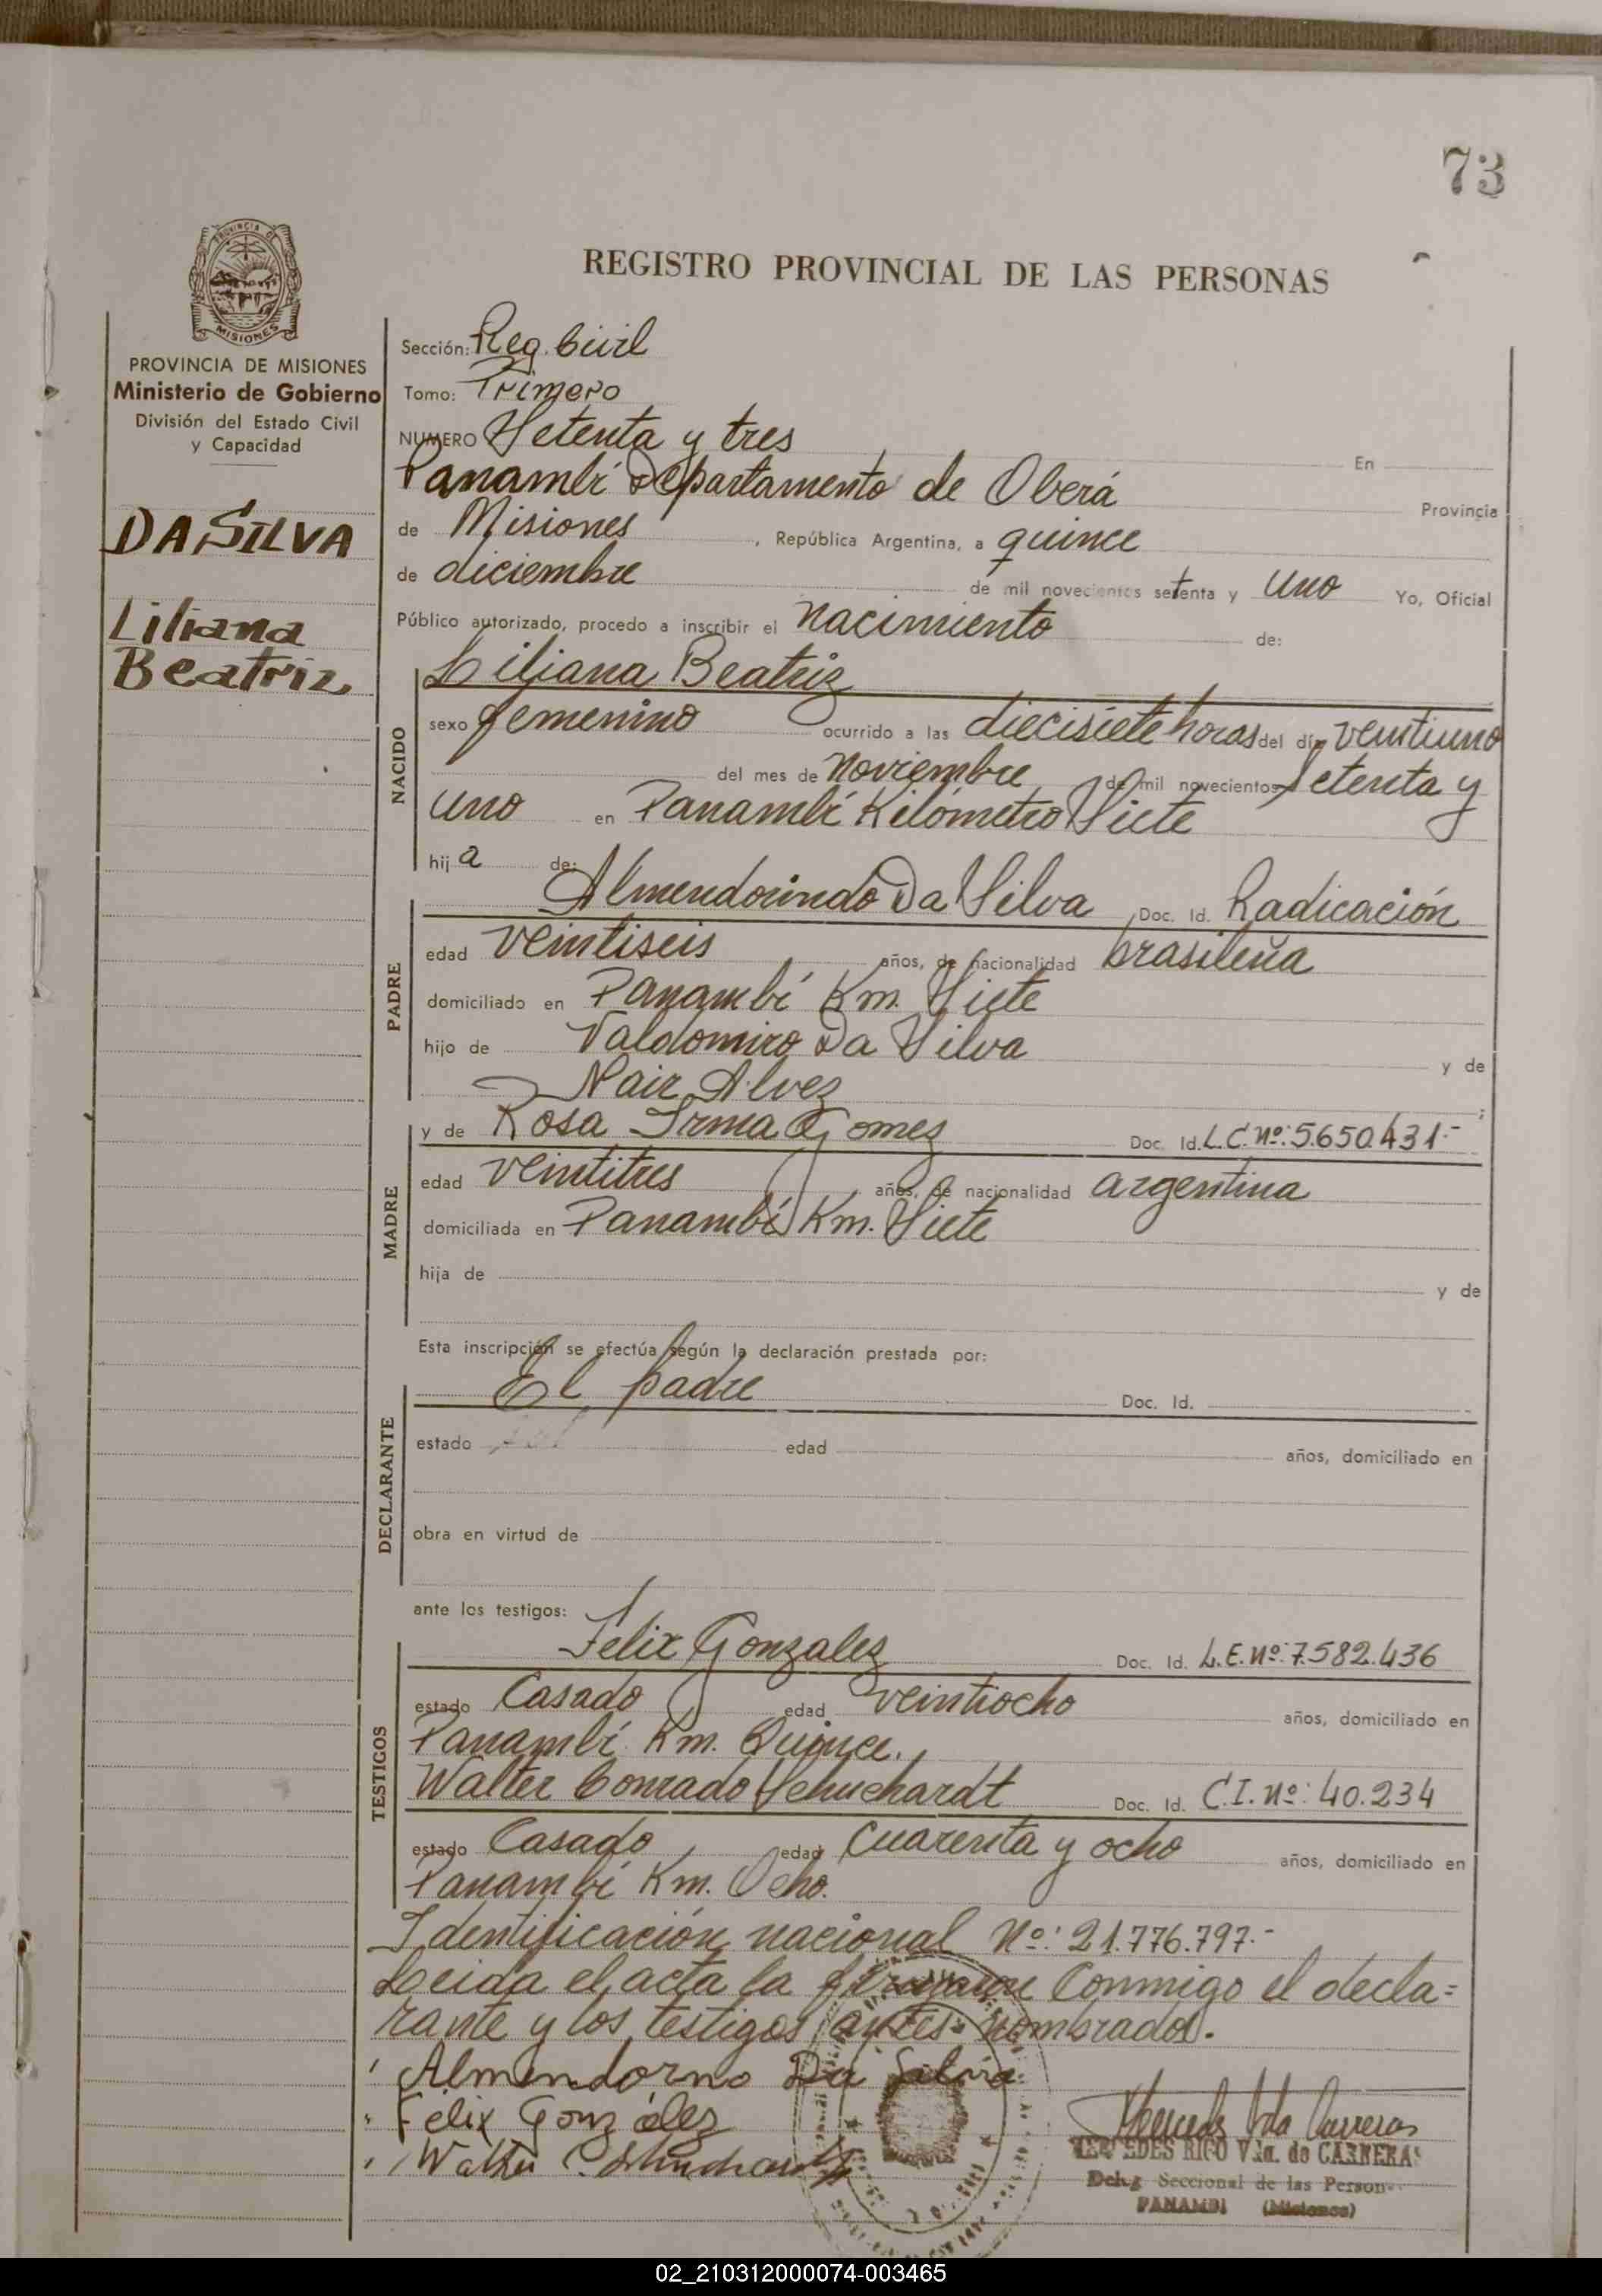 73
PROVINCIA DE
MISIONES
PROVINCIA DE MISIONES
Ministerio de Gobierno
División del Estado Civil
y Capacidad
DA SILVA
Liliana
Beatriz
REGISTRO PROVINCIAL DE LAS PERSONAS
Sección: Reg. Civil
Tomo: Primero
NUMERO Setenta y tres En
Panambí Departamento de Oberá Provincia
de Misiones, República Argentina, a quince
de diciembre de mil novecientos setenta y uno Yo, Oficial
Público autorizado, procedo a inscribir el nacimiento de:
NACIDO
Liliana Beatriz
sexo femenino ocurrido a las diecisiete horas del día veintiuno
del mes de noviembre de mil novecientos setenta y
uno en Panambí Kilómetro Siete
hija de:
PADRE
Almendorindo Da Silva Doc. Id. Radicación
edad veintiseis años, de nacionalidad brasileña
domiciliado en Panambí Km. Siete
hijo de Valdomiro Da Silva y de
Nair Alvez;
MADRE
y de Rosa Irma Gomez Doc. Id. L.C.Nº: 5.650.431.-
edad veintitres años, de nacionalidad argentina
domiciliada en Panambí Km. Siete
hija de y de
Esta inscripción se efectúa según la declaración prestada por:
DECLARANTE
El padre Doc. Id.
estado edad años, domiciliado en
obra en virtud de
ante los testigos:
TESTIGOS
Felix Gonzalez Doc. Id. L.E.Nº: 7.582.436
estado Casado edad veintiocho años, domiciliado en
Panambí Km. Quince.
Walter Conrado Schuchardt Doc. Id. C.I.Nº: 40.234
estado Casado edad cuarenta y ocho años, domiciliado en
Panambí Km. Ocho.
Identificación nacional Nº: 21.776.797.-
Leida el acta la firmaron conmigo el decla=
rante y los testigos antes nombrados.
Almendorno Da Silvia
Felix Gonzalez
Walter C. Schuchardt
MERCEDES RICO Vda. de CARRERAS
Seccional de las Person
PANAMBI (Misiones)
02_210312000074-003465